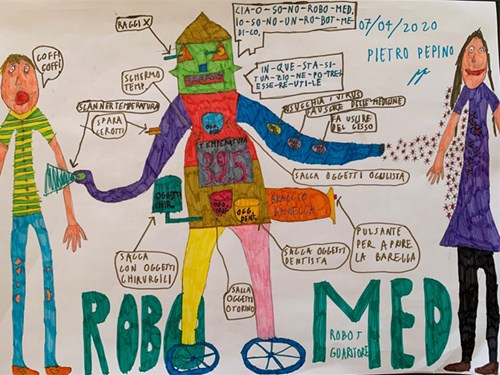 CIA-O-SO-NO-ROBO-MED,
IO-SO-NO-UN-RO-BOT-ME-
DI-CO.
07/04/2020
PIETRO PEPINO
RAGGI X
COFF!
COFF!
IN-QUE-STA-SI-
TUA-ZIO-NE-PO-TREI-
ESSE-RE-UTI-LE
SCHERMO
TEMP.
SCANNER TEMPERATURA
SPARA
CEROTTI
RISUCCHIA I VIRUS
FA USCIRE DELLE MEDICINE
FA USCIRE
DEL GESSO
TEMPERATURA
39.5
SACCA OGGETTI OCULISTA
OGGETTI
CHIR.
OGG.
DENT.
BRACCIO
BARELLA
PULSANTE
PER APRIRE
LA BARELLA
SACCA
CON OGGETTI
CHIRURGICI
SACCA OGGETTI
DENTISTA
SACCA
OGGETTI
OTORINO
ROBO MED
ROBOT
GUARITORE